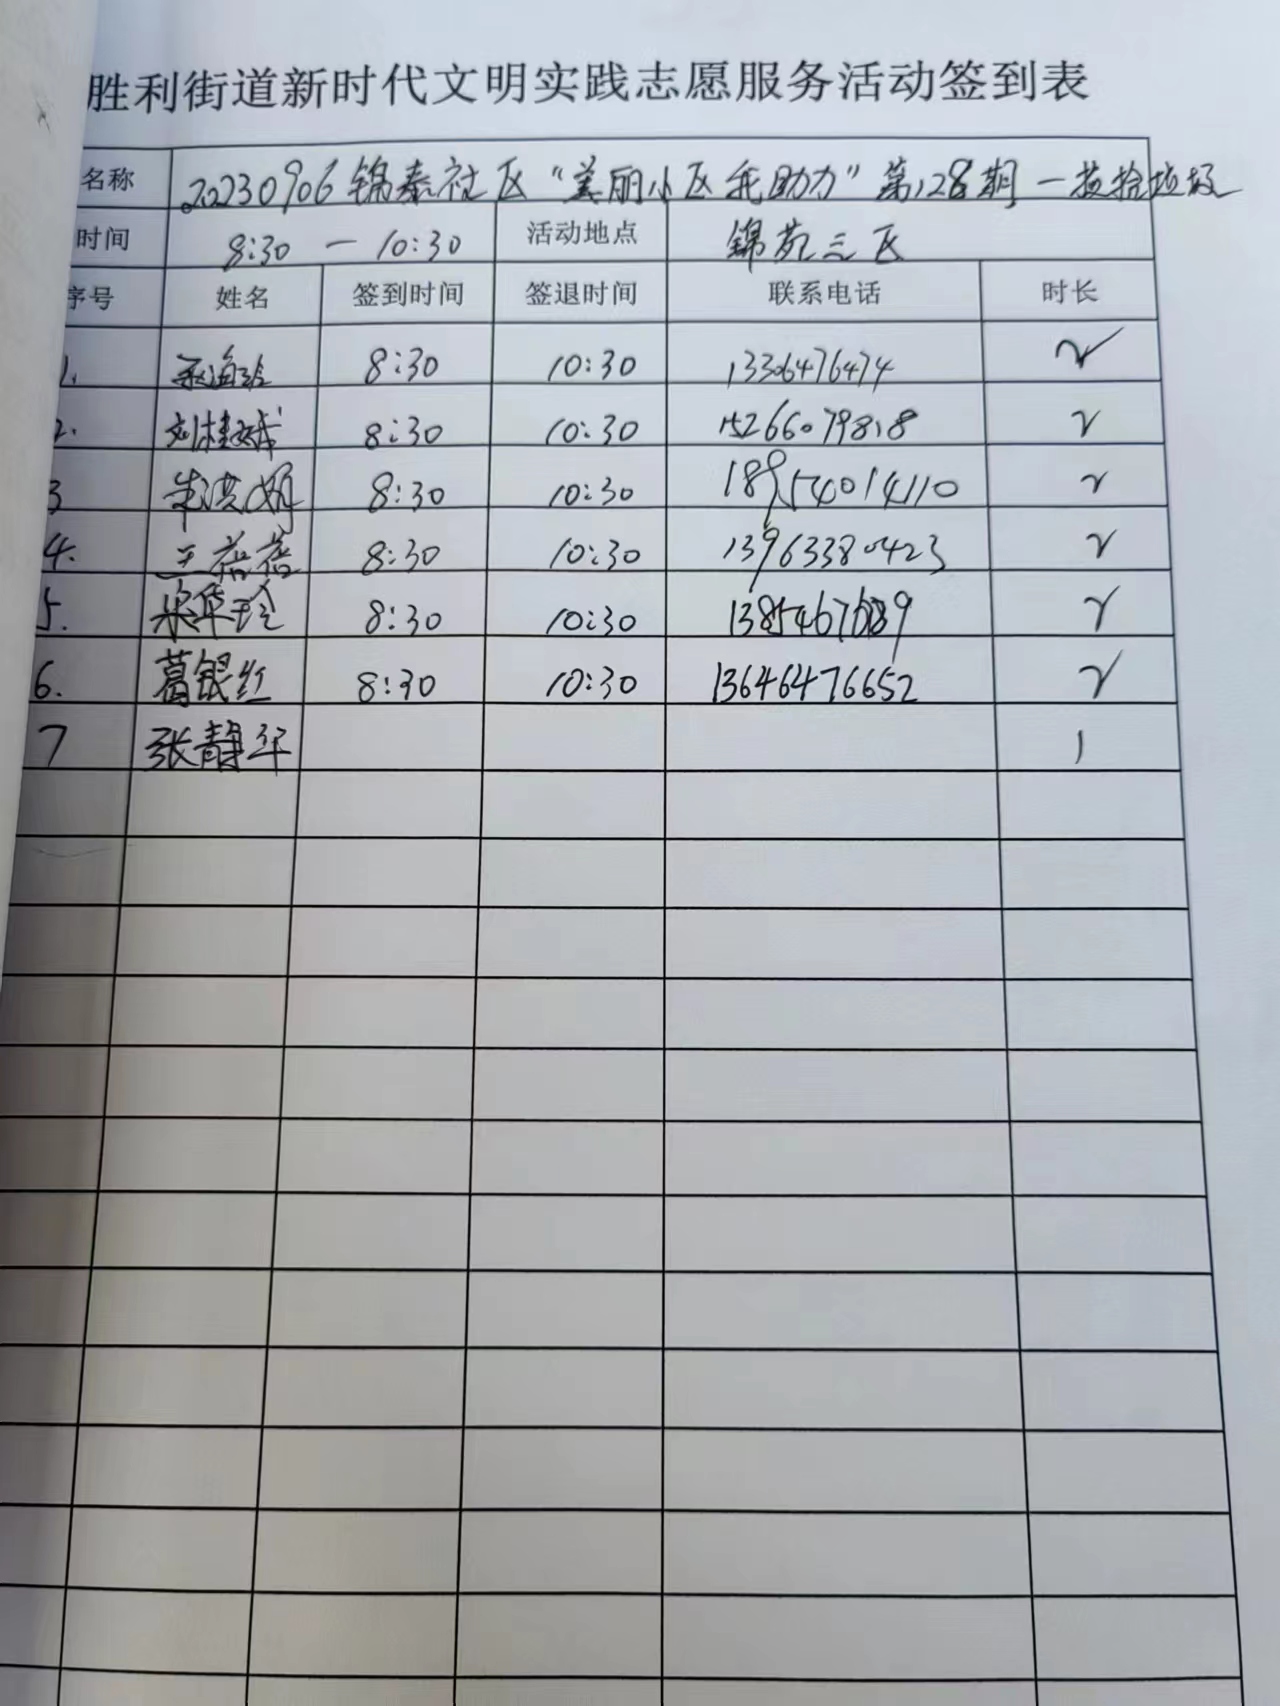 胜利街道新时代文明实践志愿服务活动签到表
名称 20230906锦泰社区“美丽小区我助力”第128期一捡拾垃圾
时间 8:30 — 10:30 活动地点 锦苑三区
序号 姓名 签到时间 签退时间 联系电话 时长
1. 8:30 10:30 13306476474 2
2. 刘桂斌 8:30 10:30 15266079818 2
3 8:30 10:30 18954014110 2
4. 王蓓蓓 8:30 10:30 13963380423 2
5. 宋华玲 8:30 10:30 2
6. 葛银红 8:30 10:30 13646476652 2
7 张静华 1